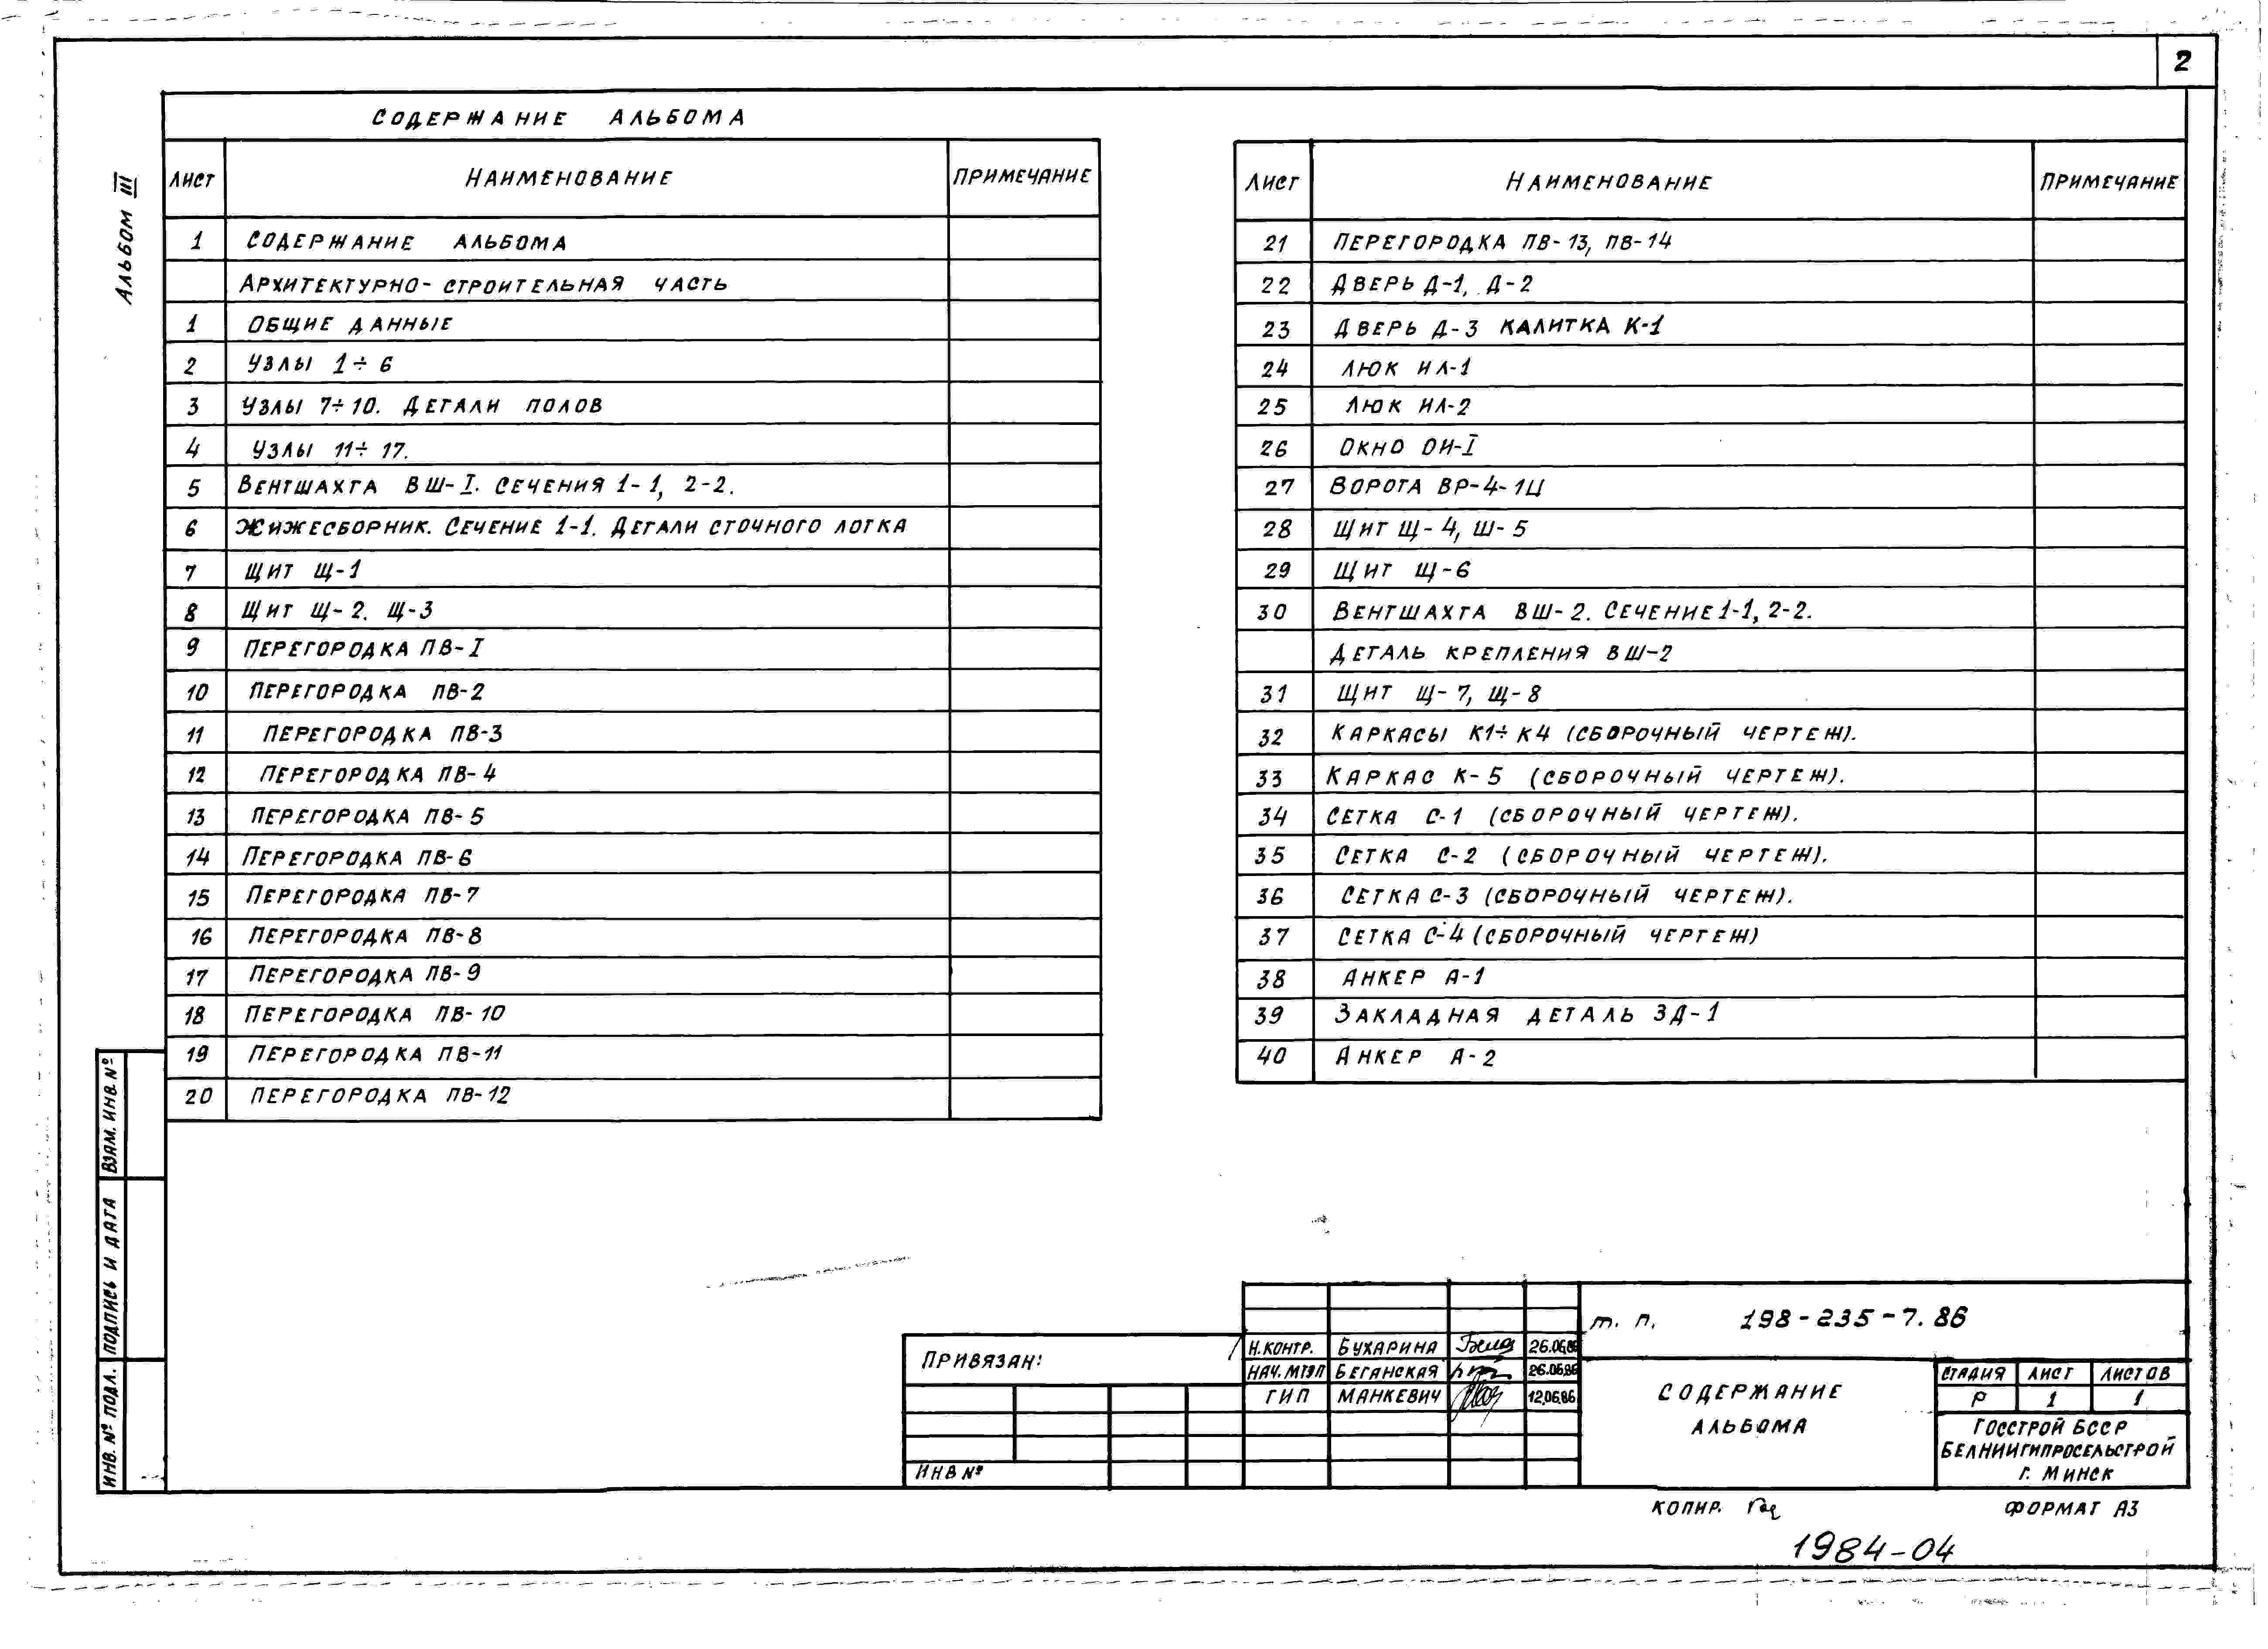 2
Альбом III
Содержание альбома
Лист Наименование Примечание
1 Содержание альбома
Архитектурно-строительная часть
1 Общие данные
2 Узлы 1÷6
3 Узлы 7÷10. Детали полов
4 Узлы 11÷17.
5 Вентшахта ВШ-I. Сечения 1-1, 2-2.
6 Жижесборник. Сечение 1-1. Детали сточного лотка
7 Щит Щ-1
8 Щит Щ-2. Щ-3
9 Перегородка ПВ-I
10 Перегородка ПВ-2
11 Перегородка ПВ-3
12 Перегородка ПВ-4
13 Перегородка ПВ-5
14 Перегородка ПВ-6
15 Перегородка ПВ-7
16 Перегородка ПВ-8
17 Перегородка ПВ-9
18 Перегородка ПВ-10
19 Перегородка ПВ-11
20 Перегородка ПВ-12
Лист Наименование Примечание
21 Перегородка ПВ-13, ПВ-14
22 Дверь Д-1, Д-2
23 Дверь Д-3 калитка К-1
24 Люк ИЛ-1
25 Люк ИЛ-2
26 Окно ОИ-I
27 Ворота ВР-4-1Ц
28 Щит Щ-4, Ш-5
29 Щит Щ-6
30 Вентшахта ВШ-2. Сечение 1-1, 2-2.
Деталь крепления ВШ-2
31 Щит Щ-7, Щ-8
32 Каркасы К1÷К4 (сборочный чертеж).
33 Каркас К-5 (сборочный чертеж).
34 Сетка С-1 (сборочный чертеж).
35 Сетка С-2 (сборочный чертеж).
36 Сетка С-3 (сборочный чертеж).
37 Сетка С-4 (сборочный чертеж)
38 Анкер А-1
39 Закладная деталь ЗД-1
40 Анкер А-2
Взам. инв. №
Подпись и дата
Инв. № подл.
Привязан:
Инв №
Н.контр. Бухарина 26.06.86
Нач. МТЭП Беганская 26.06.86
ГИП Манкевич 12.06.86
т. п. 198-235-7.86
Содержание
альбома
Стадия Лист Листов
Р 1 1
Госстрой БССР
Белниигипросельстрой
г. Минск
Копир.
Формат А3
1984-04